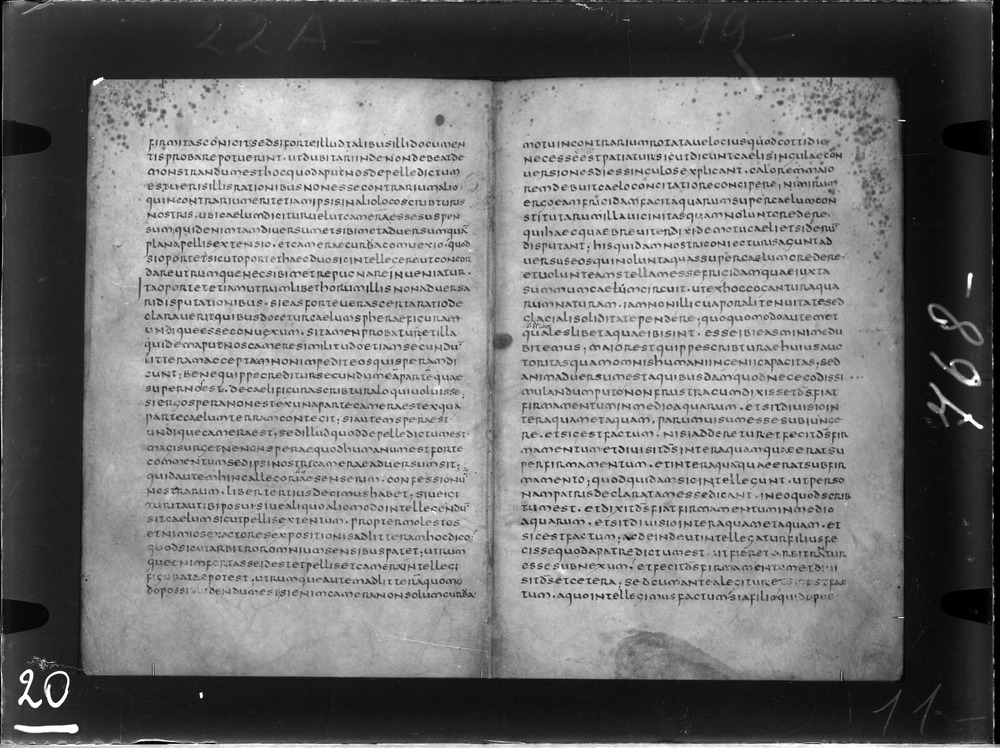 22A –
19 –
firmitasconicitsedsiforteilludtalibusillidocumen
tisprobarepotuerint utdubitariindenondebeatde
monstrandumesthocquodapudnosdepelledictum
estuerisillisrationibusnonessecontrariumalio
quincontrariumeritetiamipsisinalioloconscribturis
nostris ubicaelumdicituruelutcameraessesuspen
sum quidenimtamdiversumetsibimetadversumquā
planapellisextensio etcameraecurbaconuexio quod
sioportetsicutoportethaecduosicintellegereutconcor
dareutrumquenecsibimetrepugnareinueniatur
itaoportetetiamutrumlibethorumillisnonadversa
ridisputationibus sieasforteuerascertaratiode
claraueritquibusdoceturcaelumspheraefiguram
undiqueesseconuexum sitamenprobatur etilla
quidemaputnoscameresimilitudoetiamsecundū
litteramacceptamnonimpediteosquisperamdi
cunt benequippecreditursecundumeāpartēquae
supernosest decaelifigurascribturaloquiuoluisse
siergosperanonestexunapartecameraestexquā
partecaelumterramcontegit siautemsperaest
undiquecameraest sedilludquoddepelledictumest
magisurgetnenonsperaequodhumanumestforte
commentumsedipsinostrecameraeadversumsit
quidautemhincallegoriaesenserim confessionū
nostrarum libertertiusdecimushabet siueigi
turitautibiposuisiuealiquoaliomodointellegendū
sitcaelumsicutpellisextentum proptermolestos
etnimiosexactoresexpositionisadlitteramhocdico
quodsicutarbitroromniumsensibuspatet utrum
queenimfortasseidestetpellisetcameraintellegi
figurataepotest utrumqueautemadlitterāquomo
dopossit uidendumestsienimcameranonsolumcurba
motuincontrariumrotataueloc iusquodcottidio
necesseestpatiatursicutdicuntcaelisingulaecon
versionesdiessinguloSexplicant caloremmaio
remdebuitcaeloconcitatioreconcipere nimirum
ergoeamfrigidamfacitaquarumsupercaelumcon
stitutarumillauicinitasquamnoluntcredere
quihaecquaebreviterdixidemotucaelietsiderū
disputant hisquidamnostriconiecturisaguntad
versuseosquinoluntaquassupercaelumcredere
etuolunteamstellamessefrigidamquaeiuxta
summumcaelumcircuit utexhoccocanturaqua
rumnaturam iamnonillicuaporalitenuitatesed
glacialisoliditatependere quoquomodoautemet
qualeslibetaquaeibisint esseibieasminimedu
bitemus maiorestquippescribturaehuiusauc
toritasquamomnishumaniingeniicapacitas sed
animadversumestaquibusdamquodnecegodissi
mulandumputononfrustracumdixissetdsfiat
firmamentuminmedioaquarum etsitdiuisioin
teraquametaquam parumuisumessesubiunge
re etsicestfactum nisiadderetur etfecitdsfir
mamentumetdiuisitdsinteraquamquaeeratsu
perfirmamentum etinteraquāquaeeratsubfir
mamento quodquidamsicintellegunt utperso
nampatrisdeclaratamessedicant ineoquodscrib
tumest etdixitdsfiatfirmamentuminmedio
aquarum etsitdiuisiointeraquametaquam et
sicestfactum acdeindeutintellegaturfiliusfe
cissequodapatredictumest utfieret arbitrantur
essesubnexum etfecitdsfirmamentumetdiui
sitdsetcetera sedcumantealegitur et
tum aquointellegimusfactum siafilioquid
20
468 –
11 –